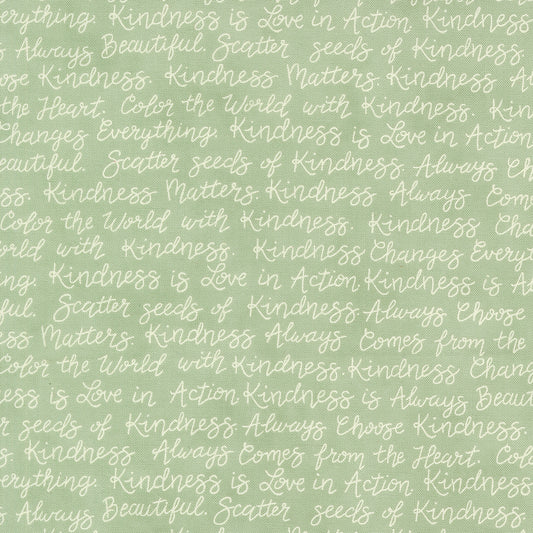 erything. Kindness is Love in Action. Kindness
s Always Beautiful. Scatter seeds of Kindness.
ose Kindness. Kindness Matters. Kindness Al
the Heart. Color the World with Kindness. Kin
Changes Everything. Kindness is Love in Action
eautiful. Scatter seeds of Kindness. Always Ch
ss. Kindness Matters. Kindness Always Come
Color the World with Kindness. Kindness Cha
orld with Kindness. Kindness Changes Everyt
ing. Kindness is Love in Action. Kindness is A
ful. Scatter seeds of Kindness. Always Choose
ess Matters. Kindness Always Comes from the
Color the World with Kindness. Kindness Chang
ess is Love in Action Kindness is Always Beaut
r seeds of Kindness. Always Choose Kindness.
s. Kindness Always Comes from the Heart. Colo
erything. Kindness is Love in Action. Kindness
s Always Beautiful. Scatter seeds of Kindness.